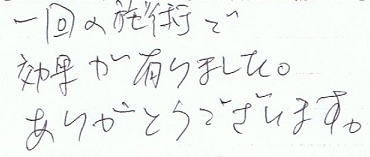 一回の施術で
効果が有りました。
ありがとうございます。